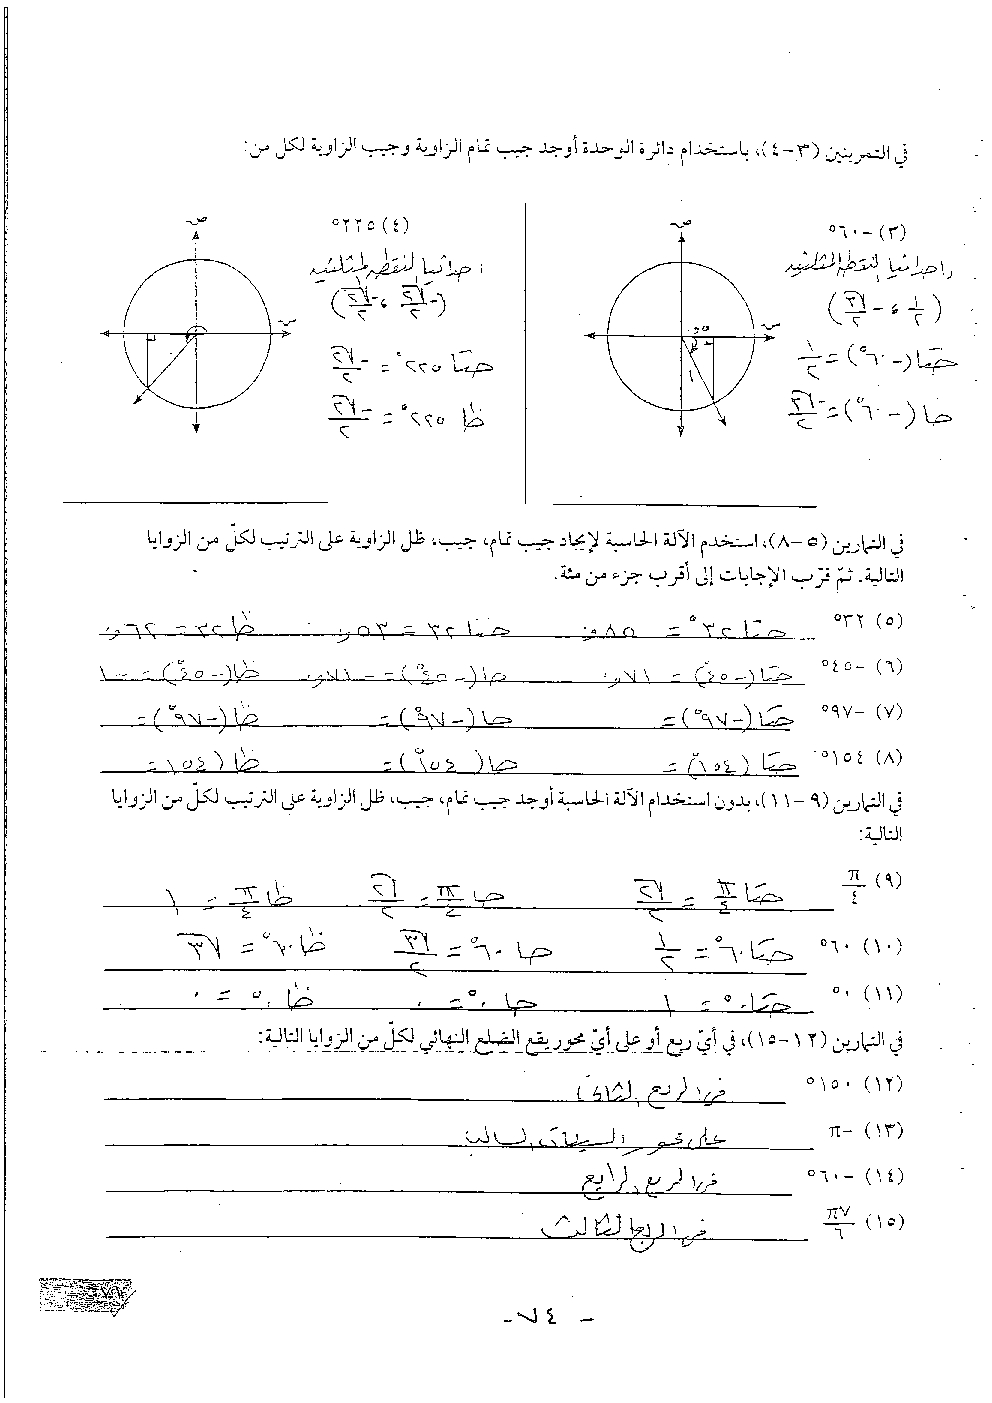 في التمرينين (٣-٤)، باستخدام دائرة الوحدة أوجد جيب تمام الزاوية وجيب الزاوية لكل من:
(٣) -٦٠°
احداثيا النقطة المثلثية
(١/٢ ، -√٣/٢)
حتا(-٦٠°) = ١/٢
حا(-٦٠°) = -√٣/٢
ص
س
١
(٤) ٢٢٥°
احداثيا النقطة المثلثية
(-√٢/٢ ، -√٢/٢)
حتا ٢٢٥° = -√٢/٢
ظا ٢٢٥° = -√٢/٢
ص
س
في التمارين (٥-٨)، استخدم الآلة الحاسبة لإيجاد جيب تمام، جيب، ظل الزاوية على الترتيب لكلّ من الزوايا
التالية. ثمّ قرّب الإجابات إلى أقرب جزء من مئة.
(٥) ٣٢° حتا ٣٢° = ٨٥,٠ حتا ٣٢ = ٥٣,٠ ظا ٣٢ = ٦٢,٠
(٦) -٤٥° حتا(-٤٥°) = ٧١,٠ حا(-٤٥°) = -٧١,٠ ظا(-٤٥°) = -١
(٧) -٩٧° حتا(-٩٧°) = حا(-٩٧°) = ظا(-٩٧°) =
(٨) ١٥٤° حتا(١٥٤°) = حا(١٥٤°) = ظا(١٥٤ =
في التمارين (٩-١١)، بدون استخدام الآلة الحاسبة أوجد جيب تمام، جيب، ظل الزاوية على الترتيب لكلّ من الزوايا
التالية:
(٩) π/٤ حتا π/٤ = √٢/٢ حا π/٤ = √٢/٢ ظا π/٤ = ١
(١٠) ٦٠° حتا ٦٠° = ١/٢ حا ٦٠° = √٣/٢ ظا ٦٠° = √٣
(١١) ٠° حتا ٠° = ١ حا ٠° = ٠ ظا ٠° = ٠
في التمارين (١٢-١٥)، في أيّ ربع أو على أيّ محور يقع الضلع النهائي لكلّ من الزوايا التالية:
(١٢) ١٥٠° في الربع الثاني
(١٣) -π على محور السينات السالبة
(١٤) -٦٠° في الربع الرابع
(١٥) ٧π/٦ في الربع الثالث
- ٧٤ -